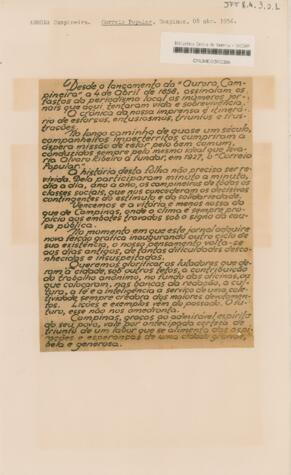 AURORA Campineira. Correio Popular, Campinas, 05 abr. 1956.
"Desde o lançamento da "Aurora Campineira" a 4 de Abril de 1858, assinalam os fastos do periodismo local os inúmeros jornais que aqui tentaram vida e sobrevivência.
A crônica da nossa imprensa é itinerário de esforços, entusiasmos, triunfos e frustrações.
Ao longo caminho de quase um século, companheiros impertérritos cumpriram a áspera missão de zelar pelo bem comum, conduzidos sempre pelo mesmo ideal que levaria Alvaro Ribeiro a fundar, em 1927, o "Correio Popular".
A história desta folha não precisa ser revivida. Dela participaram minuto a minuto, dia a dia, ano a ano, os campineiros de todas as classes sociais, que nos concederam os decisivos contingentes do estímulo e da solidariedade.
Vencemos e a vitória é menos nossa do que de Campinas, onde o clima é sempre propício aos embates travados sob o signo da causa pública.
No momento em que este jornal adquire nova feição gráfica inaugurando outro ciclo de sua existência, o nosso pensamento volta-se aos dias antigos, de tantas dificuldades desconhecidas e insuspeitadas.
Queremos glorificar os lutadores que deram à cidade, sob outros tetos, a contribuição do trabalho anônimo, no fundo das oficinas, ou que colocaram, nas bancas da redação, a cultura, a fé e a inteligência a serviço de uma coletividade sempre credora dos maiores devotamentos.
Lições e exemplos vem do passado. O futuro, esse não nos amedronta.
Campinas, graças ao admirável espírito do seu povo, vale por antecipada certeza de triunfo de um labor que se alimenta das aspirações e esperanças de uma cidade grande, bela e generosa.